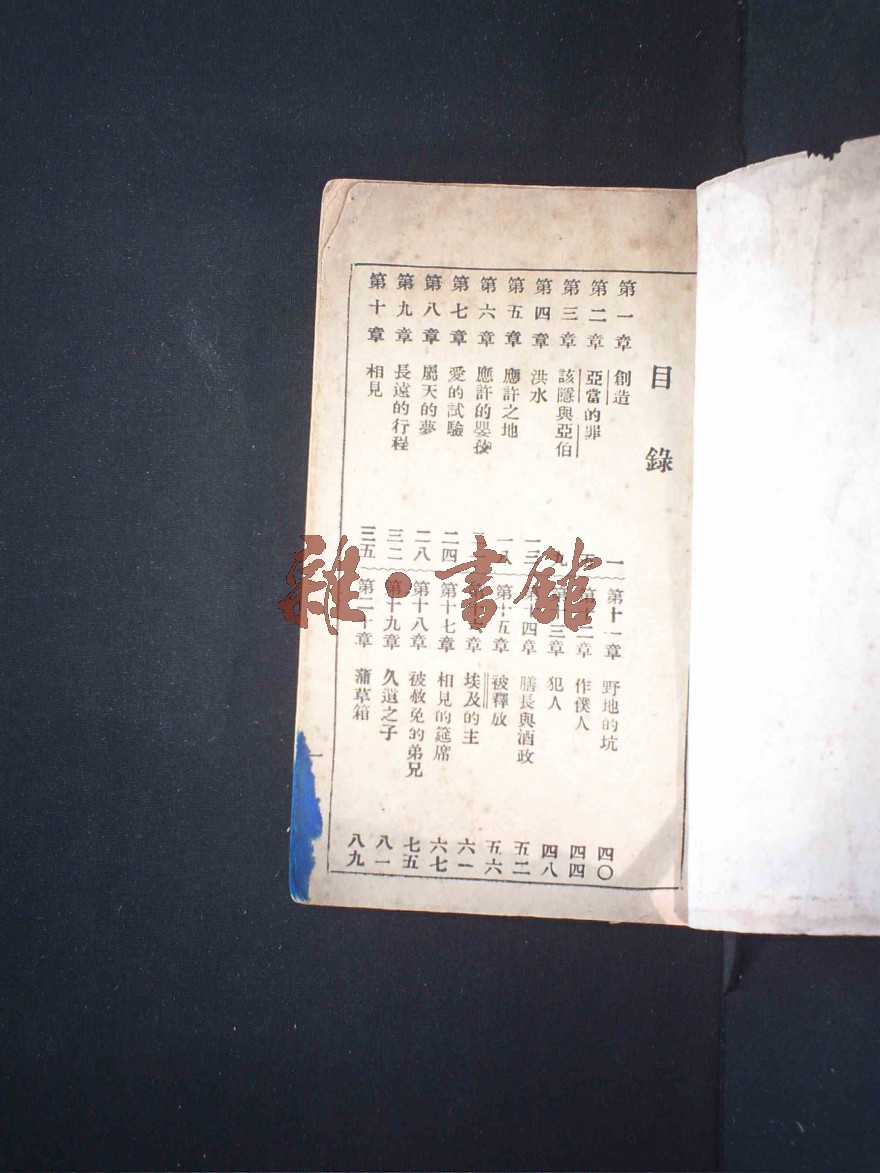 目錄
第一章 創造 一
第二章 亞當的罪
第三章 該隱與亞伯 九
第四章 洪水 一三
第五章 應許之地 一八
第六章 應許的嬰孩
第七章 愛的試驗 二四
第八章 屬天的夢 二八
第九章 長遠的行程 三二
第十章 相見 三五
第十一章 野地的坑 四〇
第十二章 作僕人 四四
第十三章 犯人 四八
第十四章 膳長與酒政 五二
第十五章 被釋放 五六
第十六章 埃及的主 六一
第十七章 相見的筵席 六七
第十八章 被赦免的弟兄 七五
第十九章 久遺之子 八一
第二十章 蒲草箱 八九
一
雜·書館